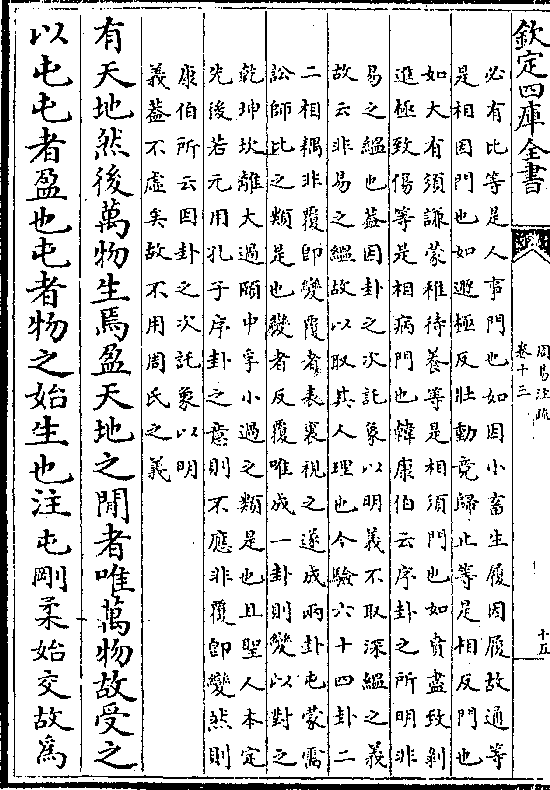 欽定四庫全書
周易注疏
卷十三
十五
必有比等是人事門也如因小畜生履因履故通等
是相因門也如遯極反壯動竟歸止等是相反門也
如大有須謙蒙稚待養等是相須門也如賁盡致剝
進極致傷等是相病門也韓康伯云序卦之所明非
易之緼也葢因卦之次託象以明義不取深緼之義
故云非易之緼故以取其人理也今驗六十四卦二
二相耦非覆即變覆者表裏視之遂成兩卦屯蒙需
訟師比之類是也變者反覆唯成一卦則變以對之
乾坤坎離大過頤中孚小過之類是也且聖人本定
先後若元用孔子序卦之意則不應非覆即變然則
康伯所云因卦之次託象以明
義葢不虛矣故不用周氏之義
有天地然後萬物生焉盈天地之閒者唯萬物故受之
以屯屯者盈也屯者物之始生也注屯剛柔始交故為